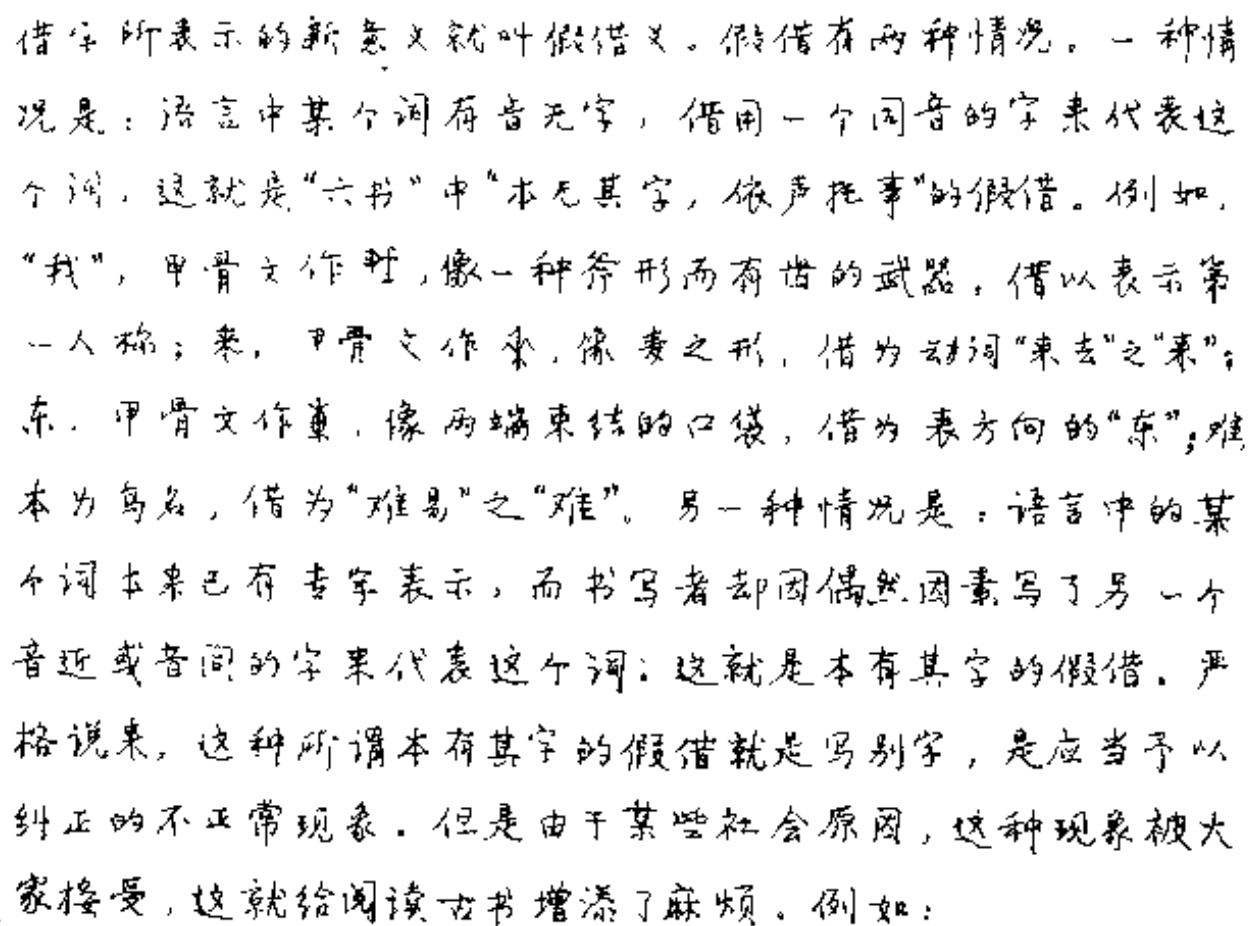 借字所表示的新意义就叫假借义。假借有两种情况。一种情
况是：语言中某个词有音无字，借用一个同音的字来代表这
个词，这就是“六书”中“本无其字，依声托事”的假借。例如，
“我”，甲骨文作，像一种斧形而有齿的武器，借以表示第
一人称；来，甲骨文作，像麦之形，借为动词“来去”之“来”；
东，甲骨文作，像两端束结的口袋，借为表方向的“东”；难
本为鸟名，借为“难易”之“难”。另一种情况是：语言中的某
个词本来已有专字表示，而书写者却因偶然因素写了另一个
音近或音同的字来代表这个词。这就是本有其字的假借。严
格说来，这种所谓本有其字的假借就是写别字，是应当予以
纠正的不正常现象。但是由于某些社会原因，这种现象被大
家接受，这就给阅读古书增添了麻烦。例如：